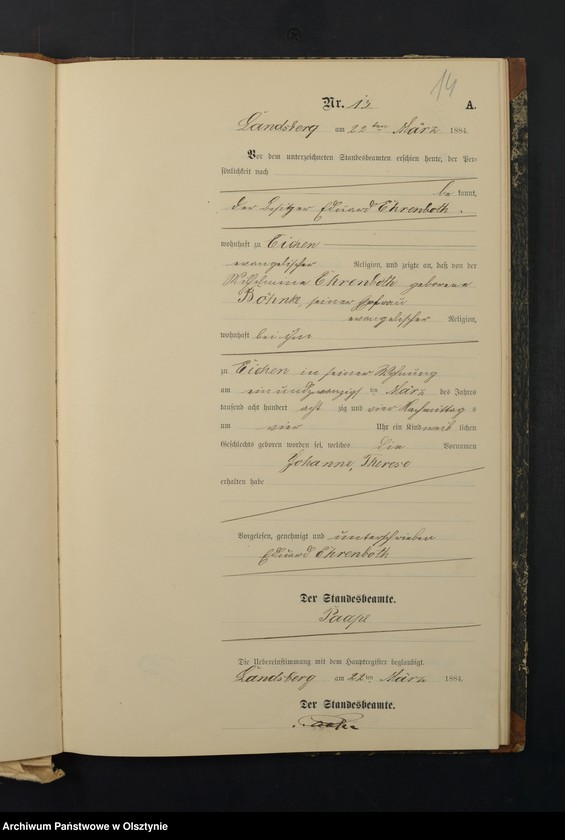 14
Nr. 13 A.
Landsberg am 22ten März 1884.
Vor dem unterzeichneten Standesbeamten erschien heute, der Per-
sönlichkeit nach
be kannt,
der Besitzer Eduard Ehrenboth.
wohnhaft zu Eichen
evangelischer Religion, und zeigte an, daß von der
Wilhelmine Ehrenboth geborene
Böhnke, seiner Ehefrau
evangelischer Religion,
wohnhaft bei ihm
zu Eichen in seiner Wohnung
am einundzwanzigsten März des Jahres
tausend acht hundert acht zig und vier Nachmittag s
um vier Uhr ein Kind weib lichen
Geschlechts geboren worden sei, welches die Vornamen
Johanne, Therese
erhalten habe
Vorgelesen, genehmigt und unterschrieben
Eduard Ehrenboth
Der Standesbeamte.
Paape
Die Uebereinstimmung mit dem Hauptregister beglaubigt.
Landsberg am 22ten März 1884.
Der Standesbeamte.
Paape
Archiwum Państwowe w Olsztynie